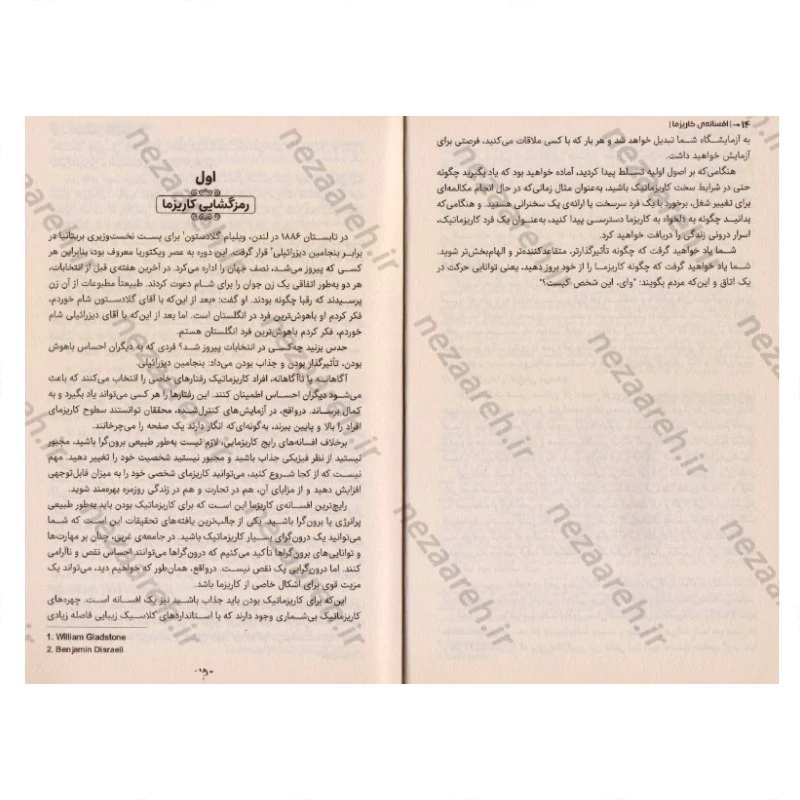 ۱۴ | افسانه‌ی کاریزما |
به آزمایشگاه شما تبدیل خواهد شد و هر بار که با کسی ملاقات می‌کنید، فرصتی برای
آزمایش خواهید داشت.
هنگامی‌که بر اصول اولیه تسلط پیدا کردید، آماده خواهید بود که یاد بگیرید چگونه
حتی در شرایط سخت کاریزماتیک باشید، به‌عنوان مثال زمانی‌که در حال انجام مکالمه‌ای
برای تغییر شغل، برخورد با یک فرد سرسخت یا ارائه‌ی یک سخنرانی هستید. و هنگامی‌که
بدانید چگونه به دلخواه به کاریزما دسترسی پیدا کنید، به‌عنوان یک فرد کاریزماتیک،
اسرار درونی زندگی را دریافت خواهید کرد.
شما یاد خواهید گرفت که چگونه تأثیرگذارتر، متقاعدکننده‌تر و الهام‌بخش‌تر شوید.
شما یاد خواهید گرفت که چگونه کاریزما را از خود بروز دهید، یعنی توانایی حرکت در
یک اتاق و این‌که مردم بگویند: "وای، این شخص کیست؟"
اول
رمزگشایی کاریزما
در تابستان ۱۸۸۶ در لندن، ویلیام گلادستون۱ برای پست نخست‌وزیری بریتانیا در
برابر بنجامین دیزرائیلی۲ قرار گرفت. این دوره به عصر ویکتوریا معروف بود، بنابراین هر
کسی که پیروز می‌شد، نصف جهان را اداره می‌کرد. در آخرین هفته‌ی قبل از انتخابات،
هر دو به‌طور اتفاقی یک زن جوان را برای شام دعوت کردند. طبیعتاً مطبوعات از آن زن
پرسیدند که رقبا چگونه بودند. او گفت: «بعد از این‌که با آقای گلادستون شام خوردم،
فکر کردم او باهوش‌ترین فرد در انگلستان است. اما بعد از این‌که با آقای دیزرائیلی شام
خوردم، فکر کردم باهوش‌ترین فرد انگلستان هستم.
حدس بزنید چه‌کسی در انتخابات پیروز شد؟ فردی که به دیگران احساس باهوش
بودن، تأثیرگذار بودن و جذاب بودن می‌داد: بنجامین دیزرائیلی.
آگاهانه یا ناآگاهانه، افراد کاریزماتیک رفتارهای خاصی را انتخاب می‌کنند که باعث
می‌شود دیگران احساس اطمینان کنند. این رفتارها را هر کسی می‌تواند یاد بگیرد و به
کمال برساند. درواقع، در آزمایش‌های کنترل‌شده، محققان توانستند سطوح کاریزمای
افراد را بالا و پایین ببرند، به‌گونه‌ای‌که انگار دارند یک صفحه را می‌چرخانند.
برخلاف افسانه‌های رایج کاریزمایی، لازم نیست به‌طور طبیعی برون‌گرا باشید، مجبور
نیستید از نظر فیزیکی جذاب باشید و مجبور نیستید شخصیت خود را تغییر دهید. مهم
نیست که از کجا شروع کنید، می‌توانید کاریزمای شخصی خود را به میزان قابل‌توجهی
افزایش دهید و از مزایای آن، هم در تجارت و هم در زندگی روزمره بهره‌مند شوید.
رایج‌ترین افسانه‌ی کاریزما این است که برای کاریزماتیک بودن باید به‌طور طبیعی
پرانرژی یا برون‌گرا باشید. یکی از جالب‌ترین یافته‌های تحقیقات این است که شما
می‌توانید یک درون‌گرای بسیار کاریزماتیک باشید. در جامعه‌ی غربی، چنان بر مهارت‌ها
و توانایی‌های برون‌گراها تأکید می‌کنیم که درون‌گراها می‌توانند احساس نقص و ناآرامی
کنند. اما درون‌گرایی یک نقص نیست. درواقع، همان‌طور که خواهیم دید، می‌تواند یک
مزیت قوی برای اشکال خاصی از کاریزما باشد.
این‌که برای کاریزماتیک بودن باید جذاب باشید نیز یک افسانه است. چهره‌های
کاریزماتیک بی‌شماری وجود دارند که با استانداردهای کلاسیک زیبایی فاصله زیادی
1. William Gladstone
2. Benjamin Disraeli
nezaareh.ir